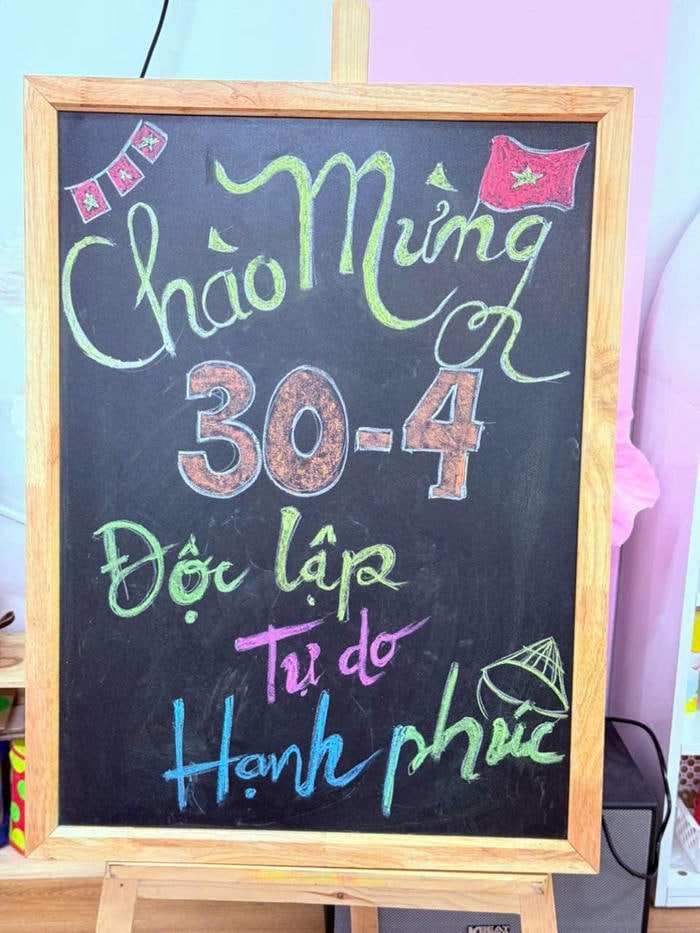 Chào Mừng
30-4
Độc lập
Tự do
Hạnh phúc